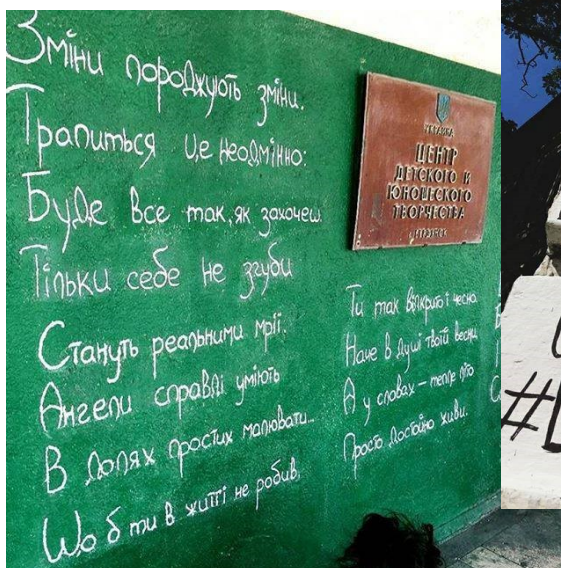 Зміни породжують зміни.
Трапиться це неодмінно:
Буде все так, як захочеш
Тільки себе не згуби
Стануть реальними мрії.
Ангели справді уміють
В долях простих малювати...
Що б ти в житті не робив,
УКРАИНА
ЦЕНТР
ДЕТСКОГО И
ЮНОШЕСКОГО
ТВОРЧЕСТВА
Ти так відкрито і чесно
Наче в душі твоїй весни
А у словах – тепле літо
Просто достойно живи.
#